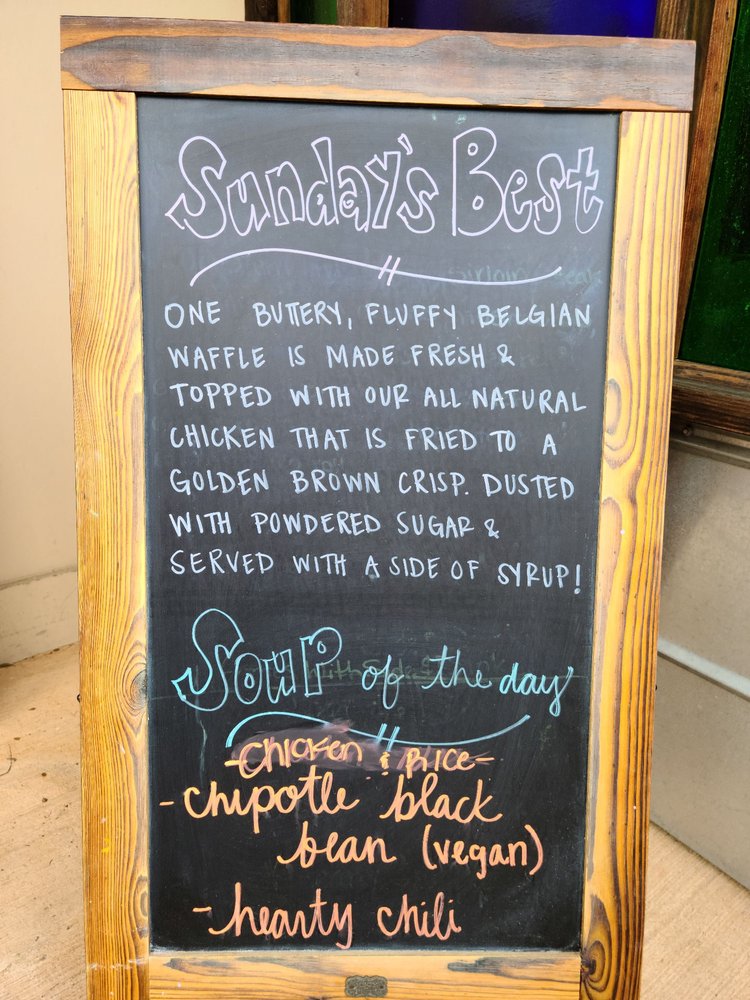 Sunday's Best
ONE BUTTERY, FLUFFY BELGIAN
WAFFLE IS MADE FRESH &
TOPPED WITH OUR ALL NATURAL
CHICKEN THAT IS FRIED TO A
GOLDEN BROWN CRISP. DUSTED
WITH POWDERED SUGAR &
SERVED WITH A SIDE OF SYRUP!
Soup of the day
-Chicken & Rice-
-chipotle black
bean (vegan)
-hearty chili